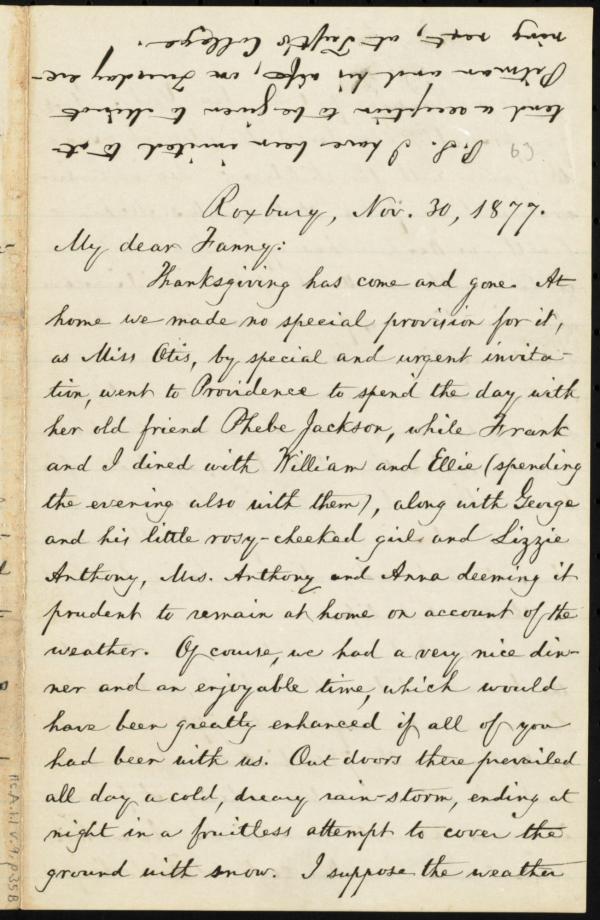 Roxbury, Nov. 30, 1877.
My dear Fanny:
Thanksgiving has come and gone. At
home we made no special provision for it,
as Miss Otis, by special and urgent invita-
tion, went to Providence to spend the day with
her old friend Phebe Jackson, while Frank
and I dined with William and Ellie (spending
the evening also with them), along with George
and his little rosy-cheeked girl and Lizzie
Anthony, Mrs. Anthony and Anna deeming it
prudent to remain at home on account of the
weather. Of course, we had a very nice din-
ner and an enjoyable time, which would
have been greatly enhanced if all of you
had been with us. Out doors there prevailed
all day a cold, dreary rain-storm, ending at
night in a fruitless attempt to cover the
ground with snow. I suppose the weather
P.S. I have been invited to at-
tend a reception to be given to
Pitman and his wife, on Tuesday eve-
ning next, at Tuft's College.
69
Ms.A.1.1 v.9 p.35B